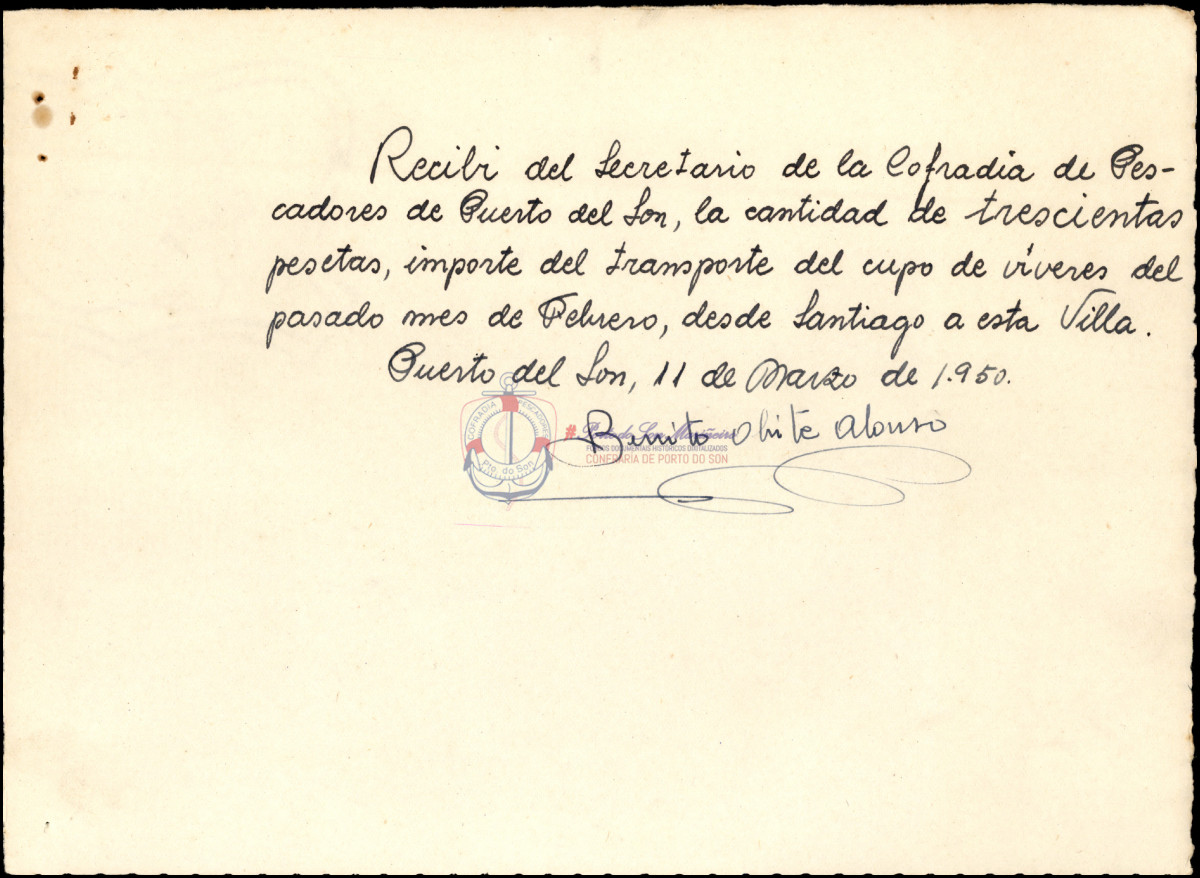 Recibi del Secretario de la Cofradia de Pes-
cadores de Puerto del Son, la cantidad de trescientas
pesetas, importe del transporte del cupo de víveres del
pasado mes de Febrero, desde Santiago a esta Villa.
Puerto del Son, 11 de Marzo de 1.950.
Benito Alonso
COFRADIA PESCADORES
Pto. do Son
# Porto do Son Mariñeiro
FONDOS DOCUMENTAIS HISTÓRICOS DIGITALIZADOS
CONFRARÍA DE PORTO DO SON